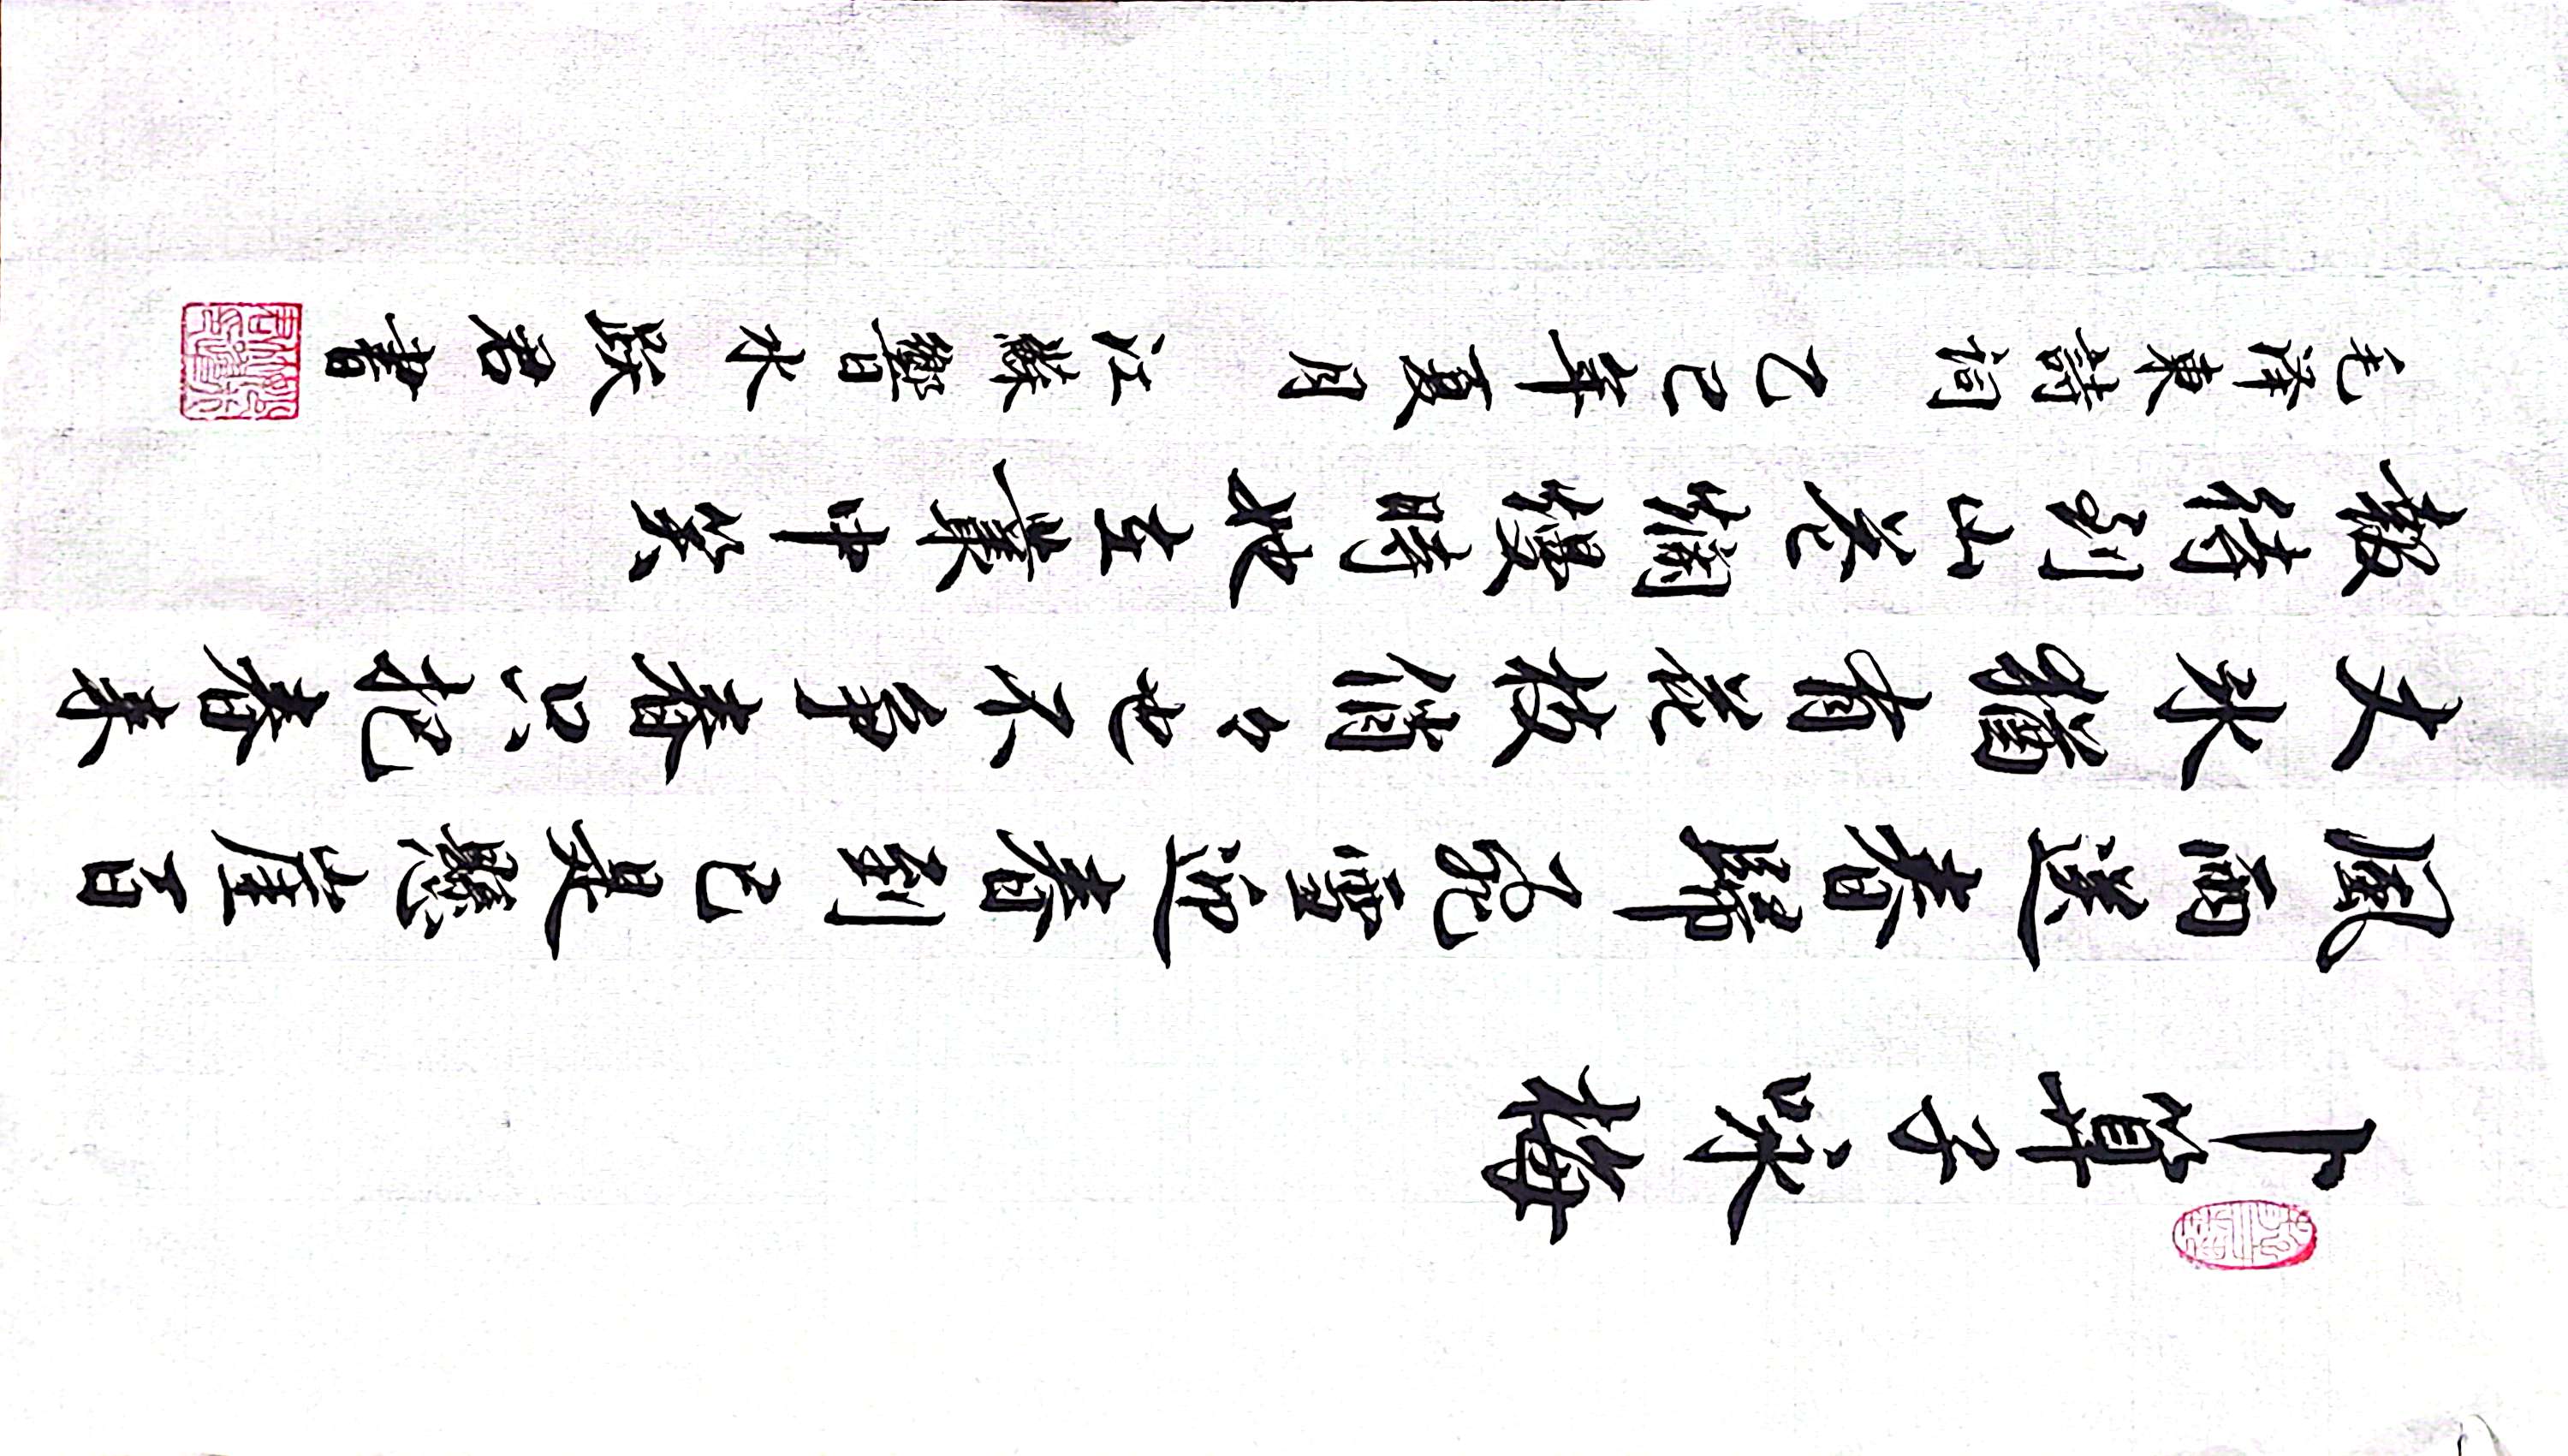 卜算子咏梅
風雨送春歸飛雪迎春到已是懸崖百
丈冰猶有花枝俏々也不争春只把春来
報待到山花爛漫時她在叢中笑
毛澤東詩詞 乙巳年夏月 江蘇響水 君書